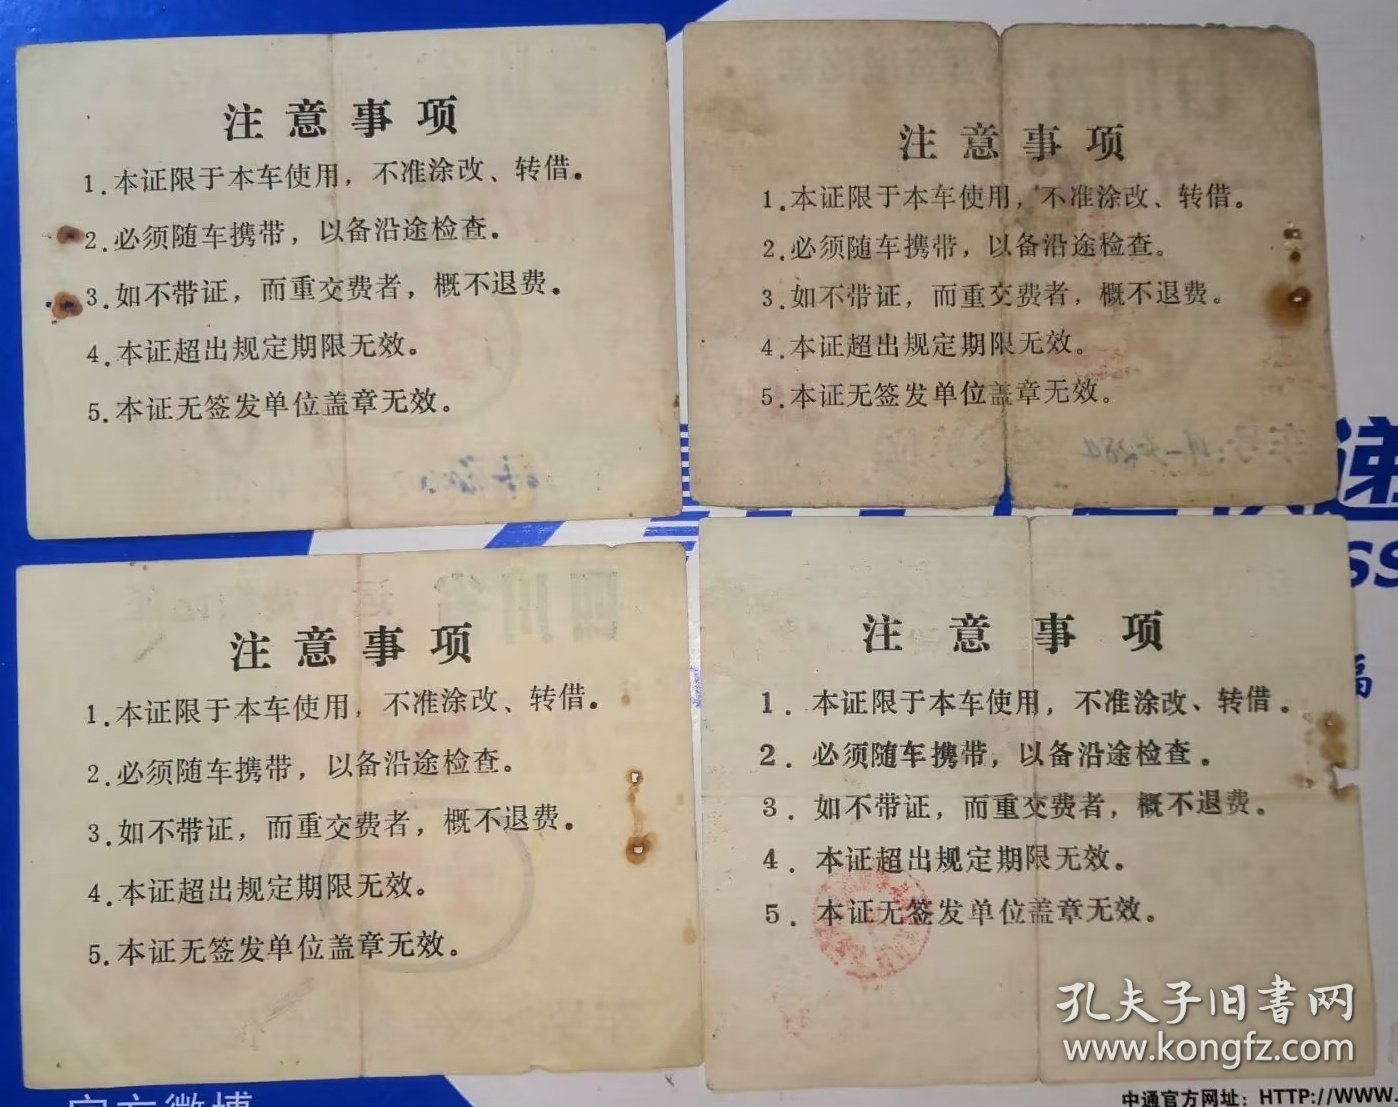 注意事项
1.本证限于本车使用，不准涂改、转借。
2.必须随车携带，以备沿途检查。
3.如不带证，而重交费者，概不退费。
4.本证超出规定期限无效。
5.本证无签发单位盖章无效。
注意事项
1.本证限于本车使用，不准涂改、转借。
2.必须随车携带，以备沿途检查。
3.如不带证，而重交费者，概不退费。
4.本证超出规定期限无效。
5.本证无签发单位盖章无效。
注意事项
1.本证限于本车使用，不准涂改、转借。
2.必须随车携带，以备沿途检查。
3.如不带证，而重交费者，概不退费。
4.本证超出规定期限无效。
5.本证无签发单位盖章无效。
注意事项
1.本证限于本车使用，不准涂改、转借。
2.必须随车携带，以备沿途检查。
3.如不带证，而重交费者，概不退费。
4.本证超出规定期限无效。
5.本证无签发单位盖章无效。
递
SS
福
孔夫子旧书网
www.kongfz.com
官方微博
中通官方网址：HTTP://WWW.